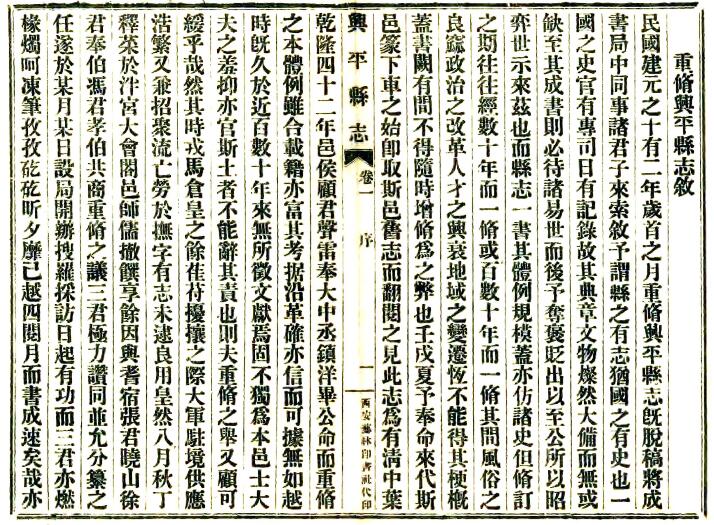 重脩興平縣志敘
民國建元之十有二年歲首之月重脩興平縣志旣脫稿將成
書局中同事諸君子來索敘予謂縣之有志猶國之有史也一
國之史官有專司日有記錄故其典章文物燦然大備而無或
缺至其成書則必待諸易世而後予奪褒貶出以至公所以昭
弈世示來茲也而縣志一書其體例規模蓋亦仿諸史但脩訂
之期往往經數十年而一脩或百數十年而一脩其間風俗之
良窳政治之改革人才之興衰地域之變遷恆不能得其梗槪
蓋書闕有間不得隨時增脩爲之弊也壬戌夏予奉命來代斯
邑篆下車之始卽取斯邑舊志而翻閱之見此志爲有淸中葉
興平縣志
卷一
序
一
西安藝林印書社代印
乾隆四十二年邑侯顧君聲雷奉大中丞鎭洋畢公命而重脩
之本體例雖合載籍亦富其考据沿革確亦信而可據無如越
時旣久於近百數十年來無所徵文獻焉固不獨爲本邑士大
夫之羞抑亦官斯土者不能辭其責也則夫重脩之舉又顧可
緩乎哉然其時戎馬倉皇之餘萑苻擾攘之際大軍駐境供應
浩繁又兼招聚流亡勞於撫字有志未逮良用皇然八月秋丁
釋菜於泮宮大會闔邑師儒撤饌享餘因與耆宿張君曉山徐
君奉伯馮君孝伯共商重脩之議三君極力讚同並允分纂之
任遂於某月某日設局開辦搜羅採訪日起有功而三君亦燃
椽燭呵凍筆孜孜矻矻昕夕靡已越四閱月而書成速矣哉亦